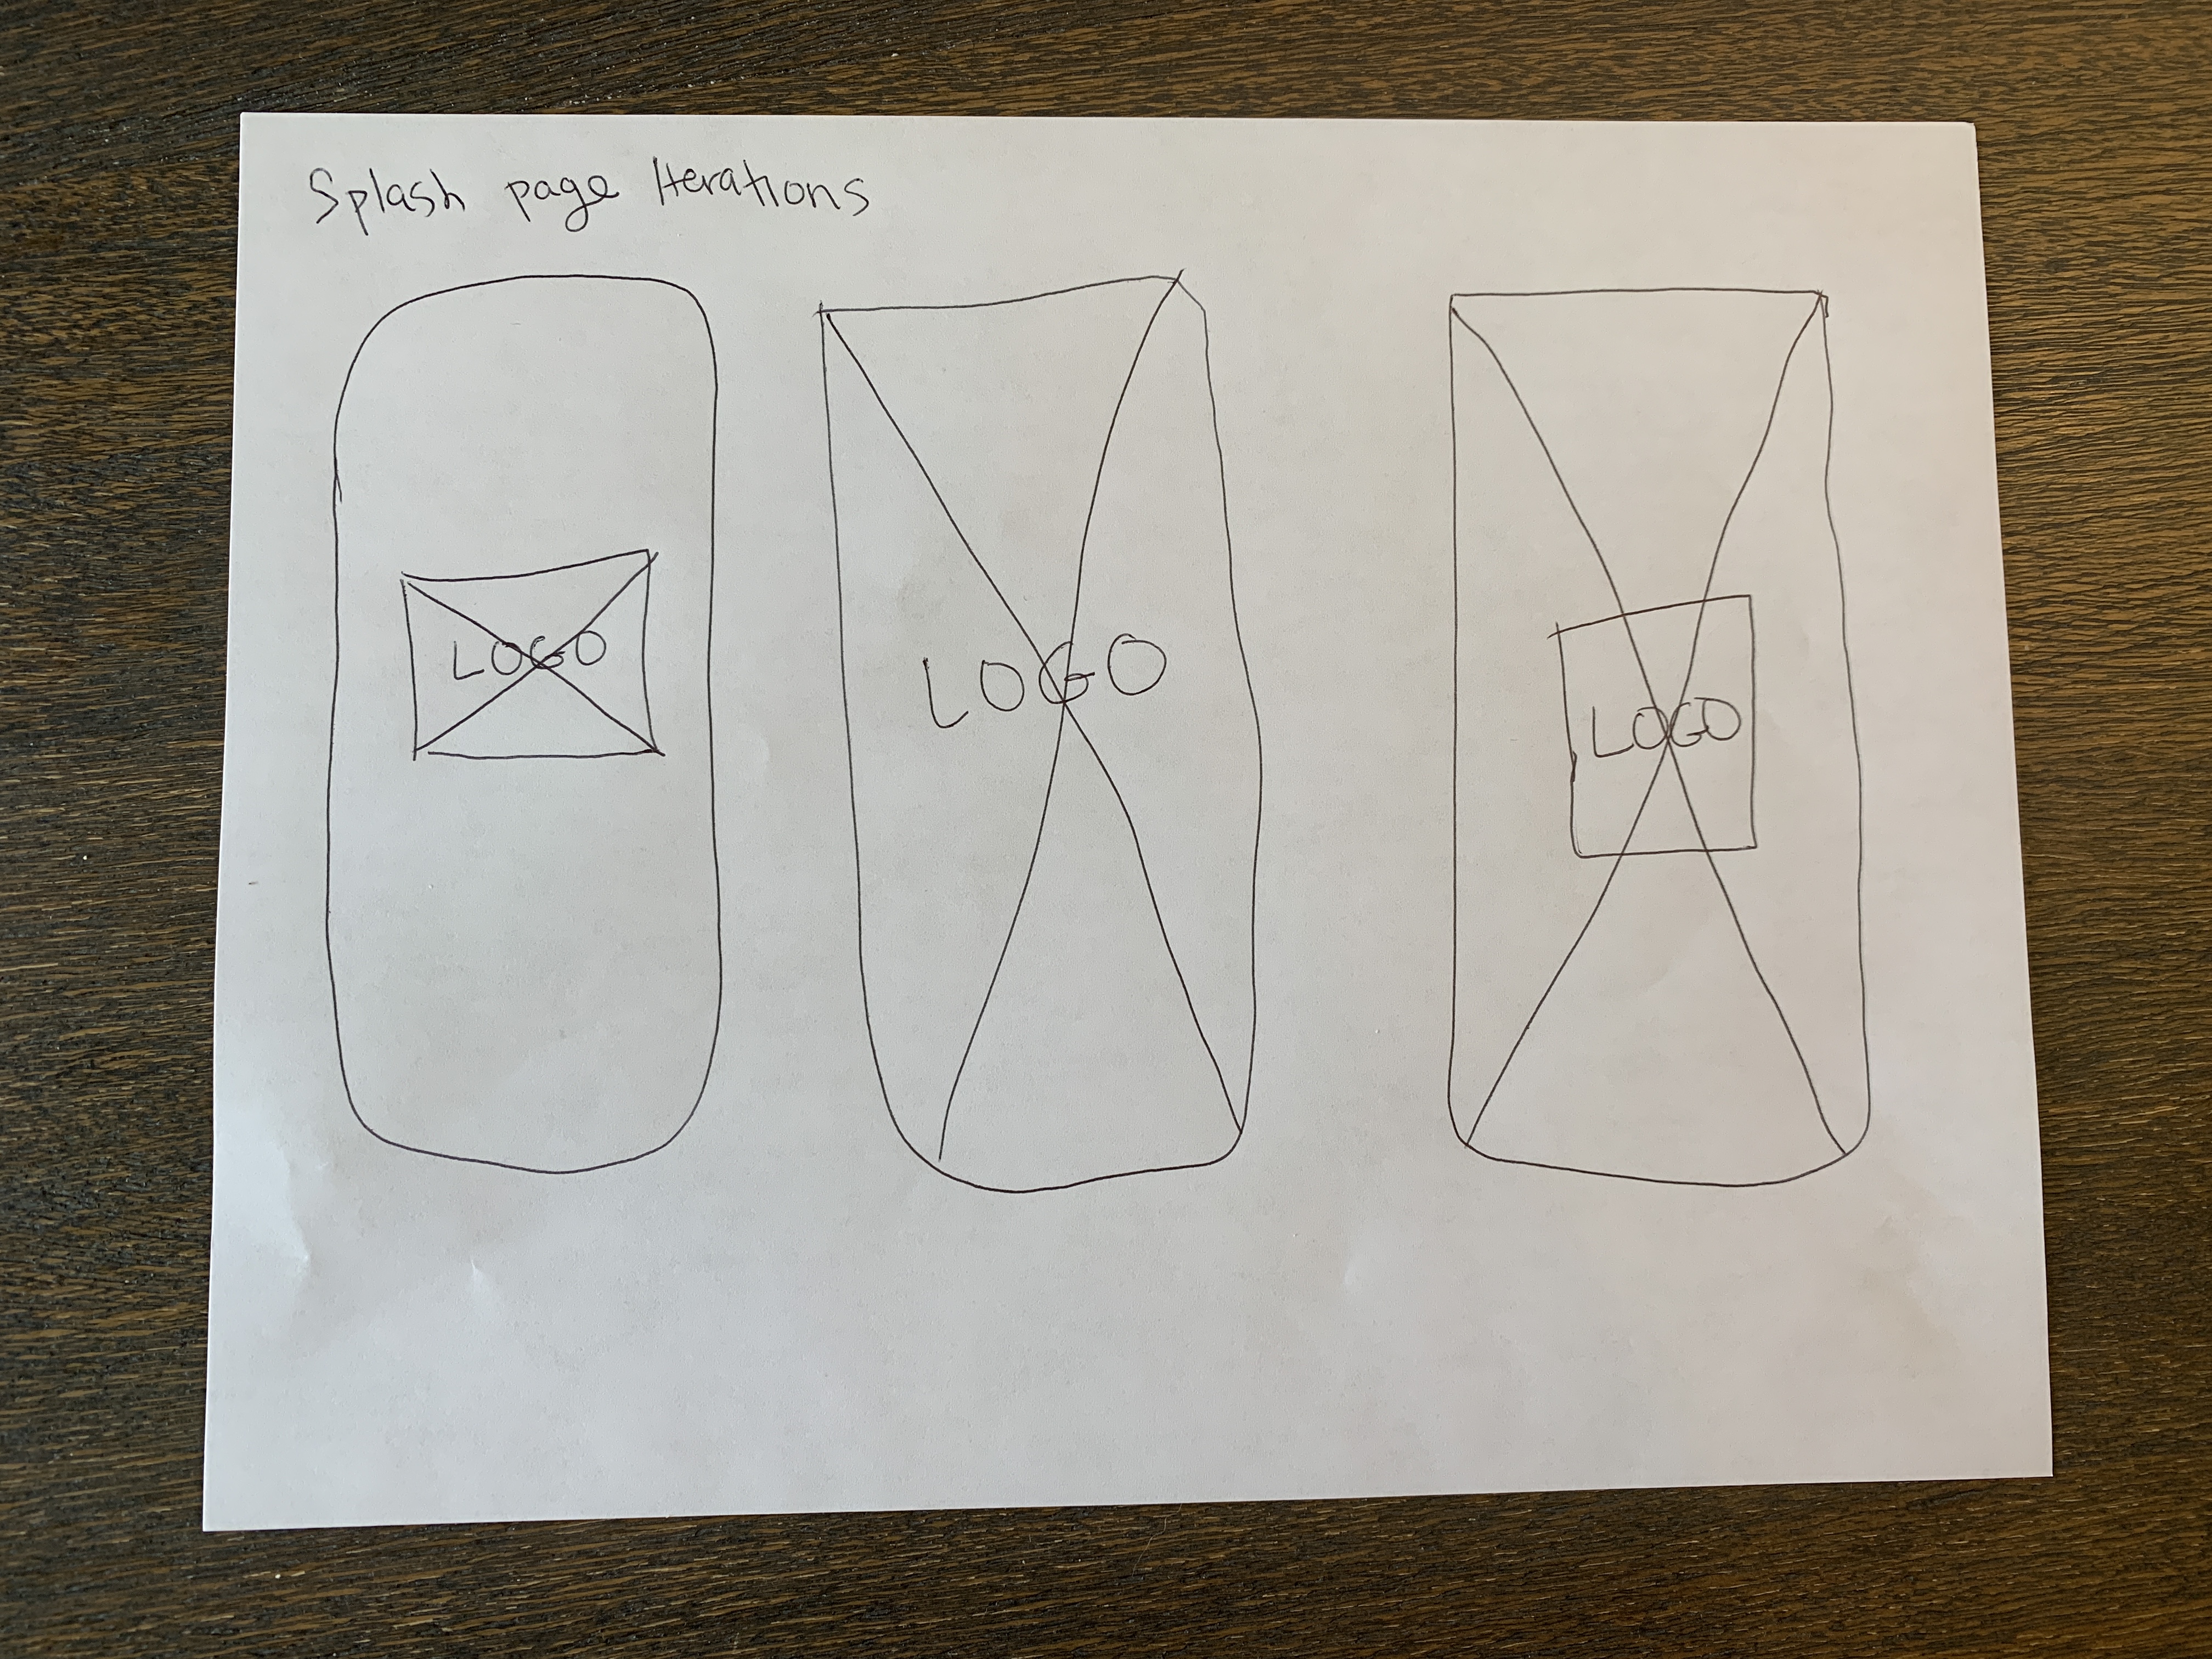 Splash page Iterations
LOGO
LOGO
LOGO